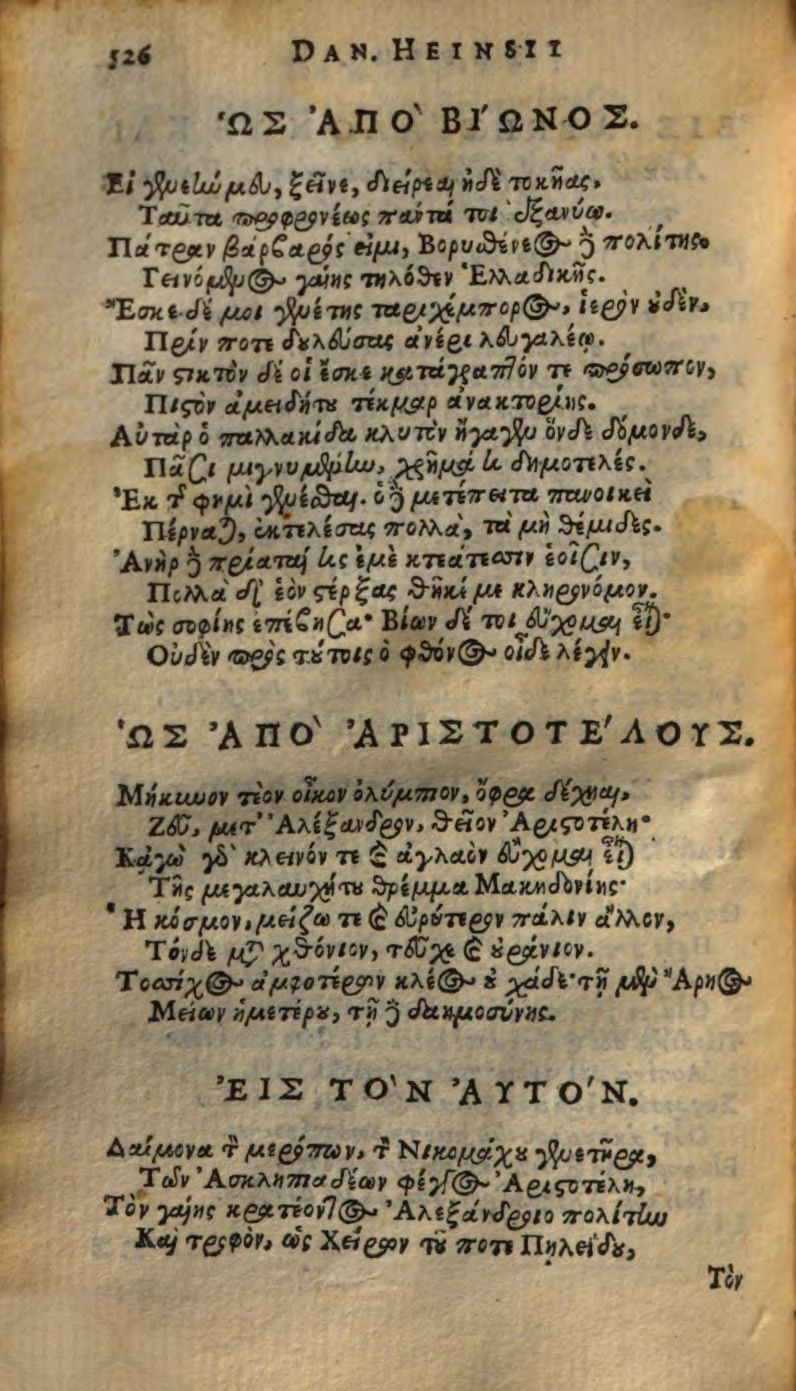 526 DAN. HEINSII
ὩΣ ἈΠΟ` ΒΙ΄ΩΝΟΣ.
Εἰ γενεὼ μευ, ξεῖνε, διείρεαι ἠδὲ τοκῆας,
Ταῦτα προφρονέως πάντα τοι ἐξανύσω.
Πάτραν βάρβαρός εἰμι, Βορυσθένεος δὲ πολίτης.
Γεινόμενος γαίης τηλόθεν Ἑλλαδικῆς.
Ἔσκε δέ μοι γενέτης ταριχέμπορος, ἱερὸν οὐδὲν,
Πρίν ποτε δουλεύσας ἀνέρι λευγαλέῳ.
Πᾶν στικτὸν δέ οἱ ἔσκε κατάγραπτόν τε πρόσωπον,
Πιστὸν ἀμειδήτου τέκμαρ ἀνακτορίης.
Αὐτὰρ ὁ παλλακίδα κλυτὴν ἤγαγεν ὅνδε δόμονδε,
Πᾶσι μιγνυμένην, χρῆμά τι δημοτελές.
Ἐκ τ φημὶ γενέσθαι. ὁ δὲ μετέπειτα πανοικεὶ
Πέρναται, ἐκτελέσας πολλὰ, τὰ μὴ θέμιδες.
Ἀνὴρ δὲ πρίαταί τις ἐμὲ κτεάτεσσιν ἑοῖσιν,
Πολλὰ δ' ἑὸν στέρξας θῆκέ με κληρονόμον.
Τὼς σοφίης ἐπέβησα· Βίων δέ τοι εὔχομαι εἶναι·
Οὐδὲν πρὸς τούτοις ὁ φθόνος οἶδε λέγειν.
ὩΣ ἈΠΟ` ἈΡΙΣΤΟΤΕ΄ΛΟΥΣ.
Μήκυνον τεὸν οἶκον ὀλύμπιον, ὄφρα δέχηαι,
Ζεῦ, μετ' Ἀλέξανδρον, θεῖον Ἀριστοτέλη·
Κἀγὼ γδ' κλεινόν τε καὶ ἀγλαὸν εὔχομαι εἶναι
Τῆς μεγαλαυχήτου θρέμμα Μακηδονίης·
Ἢ κόσμον, μείζω τε καὶ εὐρύτερον πάλιν ἄλλον,
Τόνδε μετὰ χθόνιον, τεῦχε καὶ οὐράνιον.
Τοσσίχος ἀμφοτέρων κλέος οὐ χάδε· τῇ μὲν Ἄρηος
Μείων ἡμετέρου, τῇ δὲ δαημοσύνης.
ἘΙΣ ΤΟ`Ν ἈΥΤΟ΄Ν.
Δαίμονα τ μερόπων, τ Νικομάχου γενετῆρα,
Τῶν Ἀσκληπιαδέων φέγγος Ἀριστοτέλη,
Τὸν γαίης κρατέοντος Ἀλεξάνδροιο πολίτην
Καὶ τροφὸν, ὡς Χείρων τοῦ ποτε Πηλείδου,
Τὸν